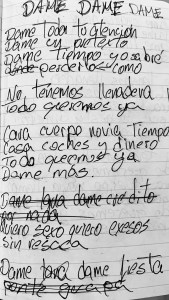 DAME DAME DAME
Dame toda tu atención
Dame un pretexto
Dame Tiempo y sabré
perderlos como
No, tenemos llenadera
Todo queremos ya
Cara cuerpo novia Tiempo
Casa coches y dinero
Todo queremos ya
Dame más.
Dame dame credito
por nada
Quiero sexo quiero exesos
sin resaca
Dame dame fiesta
ponte guapa